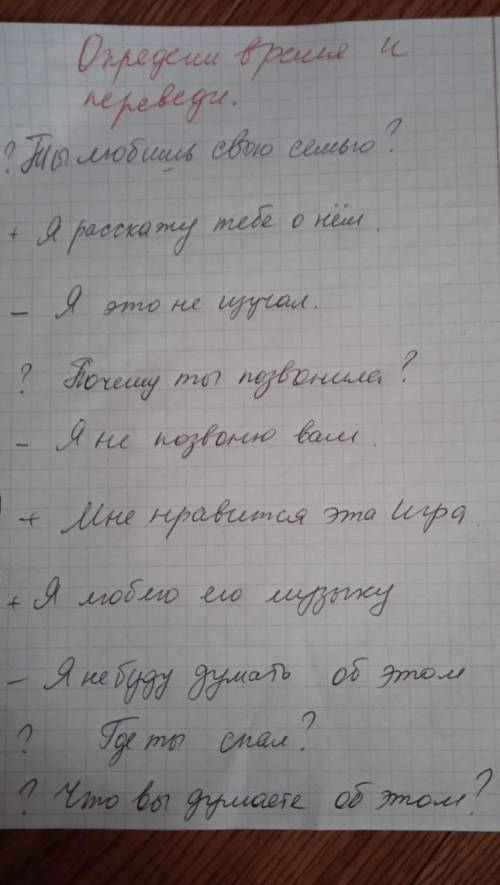 Определи время и
переведи.
? Ты любишь свою семью?
+ Я расскажу тебе о нём.
− Я это не изучал.
? Почему ты позвонила?
− Я не позвоню вам.
+ Мне нравится эта игра.
+ Я люблю его музыку
− Я не буду думать об этом
? Где ты спал?
? Что вы думаете об этом?